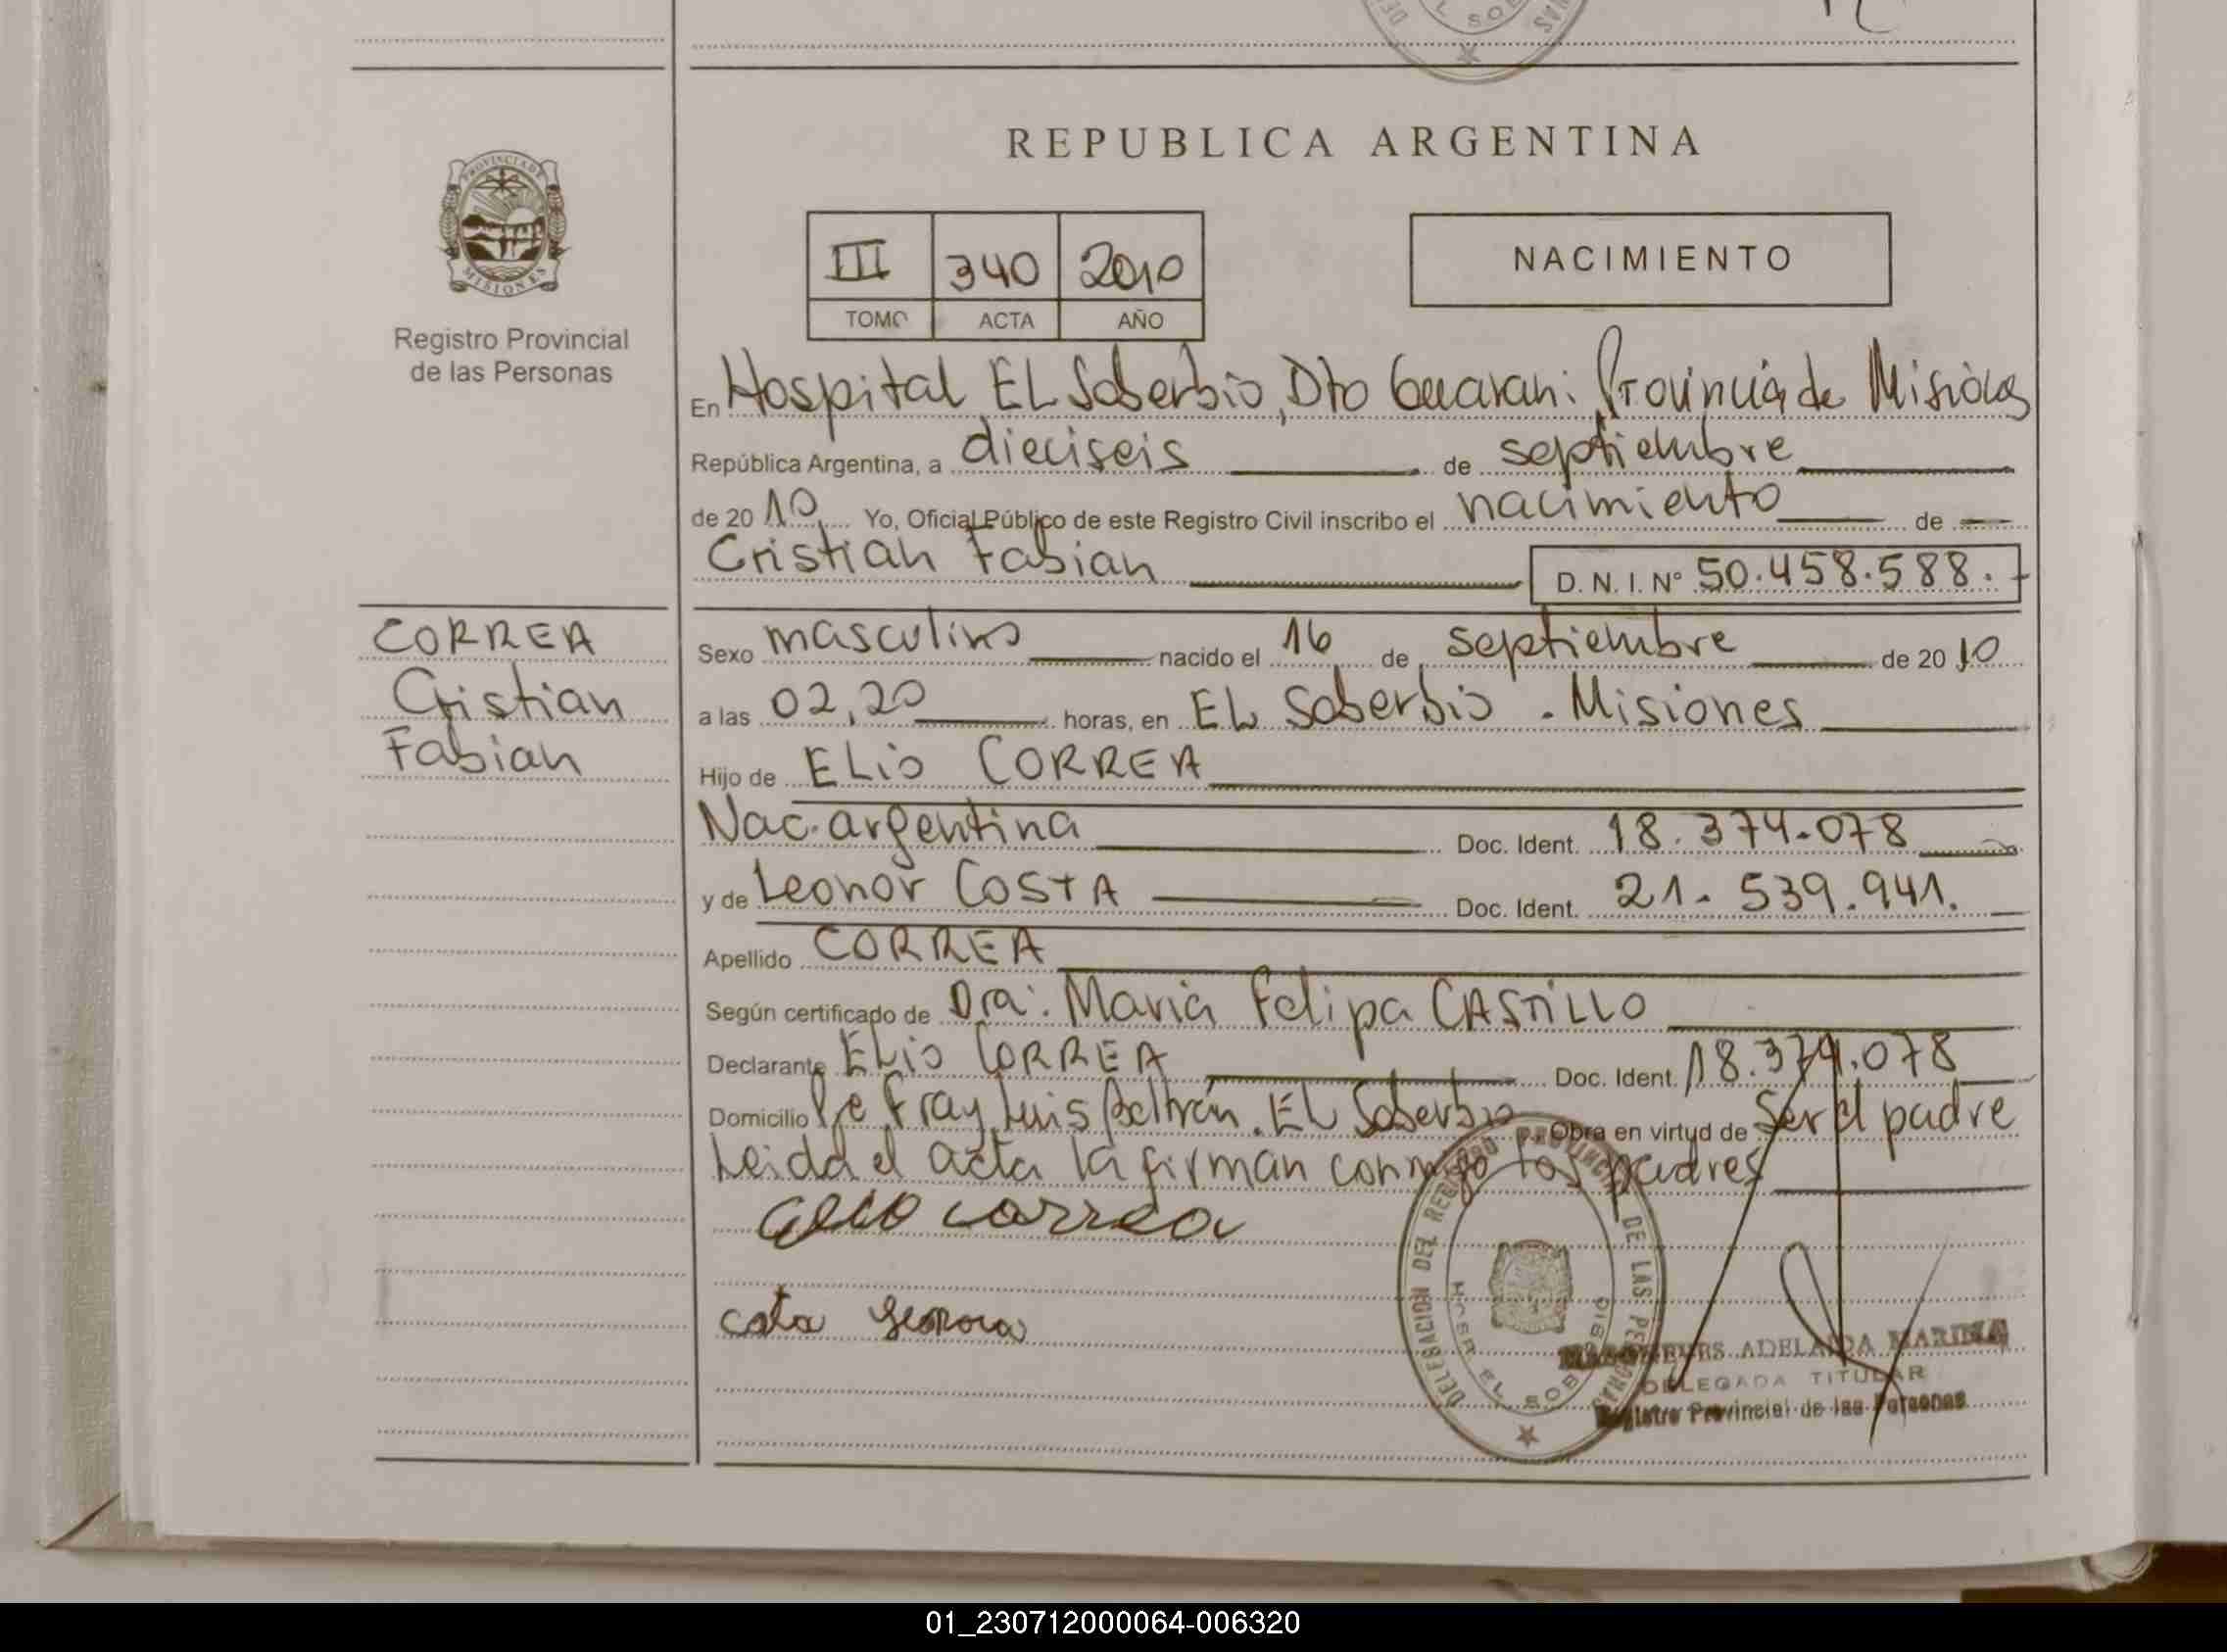 REPUBLICA ARGENTINA
PROVINCIA DE
MISIONES
Registro Provincial
de las Personas
III 340 2010
TOMO ACTA AÑO
NACIMIENTO
En Hospital EL Soberbio, Dto Guarani. Provincia de Misiones
República Argentina, a dieciseis de septiembre
de 2010 Yo, Oficial Público de este Registro Civil inscribo el nacimiento de
Cristian Fabian D. N. I. Nº 50.458.588.
CORREA
Cristian
Fabian
Sexo masculino nacido el 16 de septiembre de 2010
a las 02,20 horas, en EL Soberbio . Misiones
Hijo de ELio CORREA
Nac. argentina Doc. Ident. 18.374.078
y de Leonor COSTA Doc. Ident. 21.539.941.
Apellido CORREA
Según certificado de Dra. Maria Felipa CASTILLO
Declarante ELio CORREA Doc. Ident. 18.374.078
Domicilio Pje Fray Luis Beltrán. EL Soberbio Obra en virtud de Ser el padre
Leida el acta la firman conmigo los padres
correa
DELEGACION DEL REGISTRO PROVINCIAL DE LAS PERSONAS
EL SOBERBIO
ADELAIDA
DELEGADA TITULAR
Registro Provincial de las Personas
01_230712000064-006320